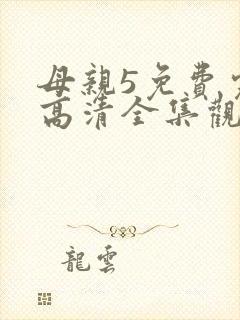 母親5免費
高清全集觀
龍雲